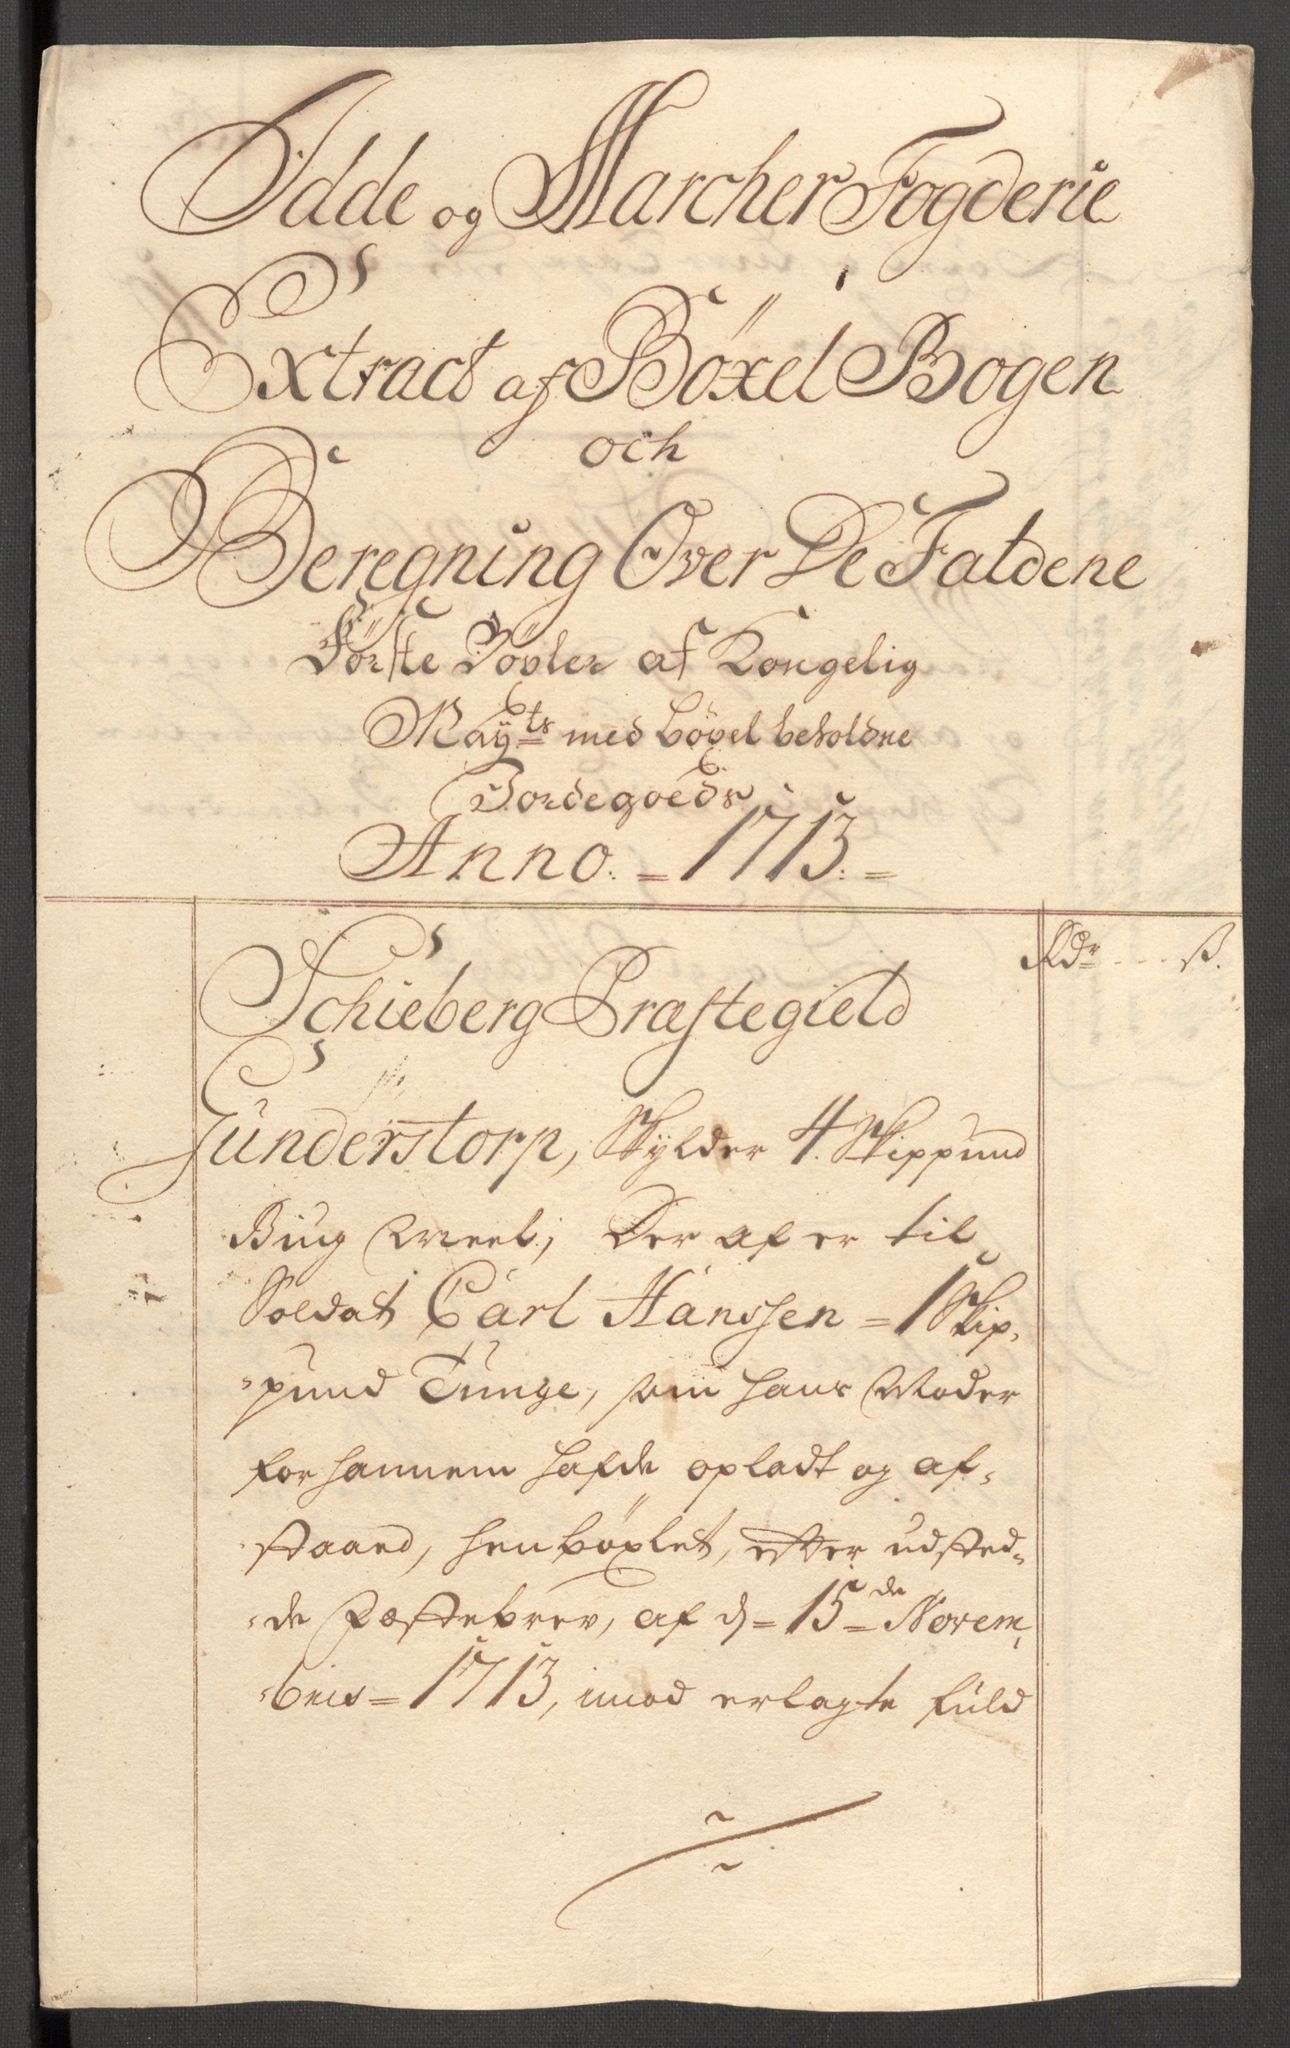 Idde og Marcher Fogderie
Extract af Böxel Bogen
och
Beregning Over De Faldene
Förste Böxler af Kongelig
Mayts med böxel beholdne
Jordegoeds
Anno. 1713.
Rdr ß.
Schieberg Præstegield
Gunderstorp, Skylder 4 Skippund
Biug Meel; Der af er til
Soldat Carl Hanssen = 1 Skip,
pund Tunge, som hans Moder
for hannem hafde opladt og af,
staaed, henböxlet, efter udsted,
de Fæstebrev, af d = 15de Novem,
bris = 1713, imod erlagte fuld